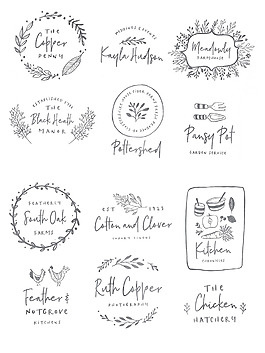 THE
Copper
PENNY
WEDDING EVENTS
Kayla Hudson
Meadowdy
FARMHOUSE
ESTABLISHED 1952
THE
Black Heath
MANOR
Pottershed
Pansy Pot
GARDEN SERVICE
FEATHERLY
South Oak
FARMS
EST 1925
Cotton and Clover
Kitchen
Feather &
NUTGROVE
KITCHENS
Ruth Copper
PHOTOGRAPHY
THE
Chicken
HATCHERY